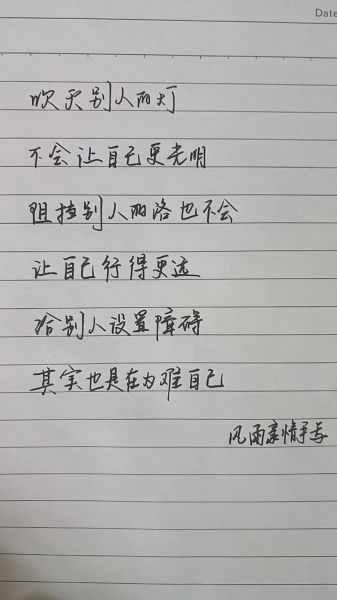 Date
吹灭别人的灯
不会让自己更光明
阻挡别人的路也不会
让自己行得更远
给别人设置障碍
其实也是在为难自己
风雨亲情手写